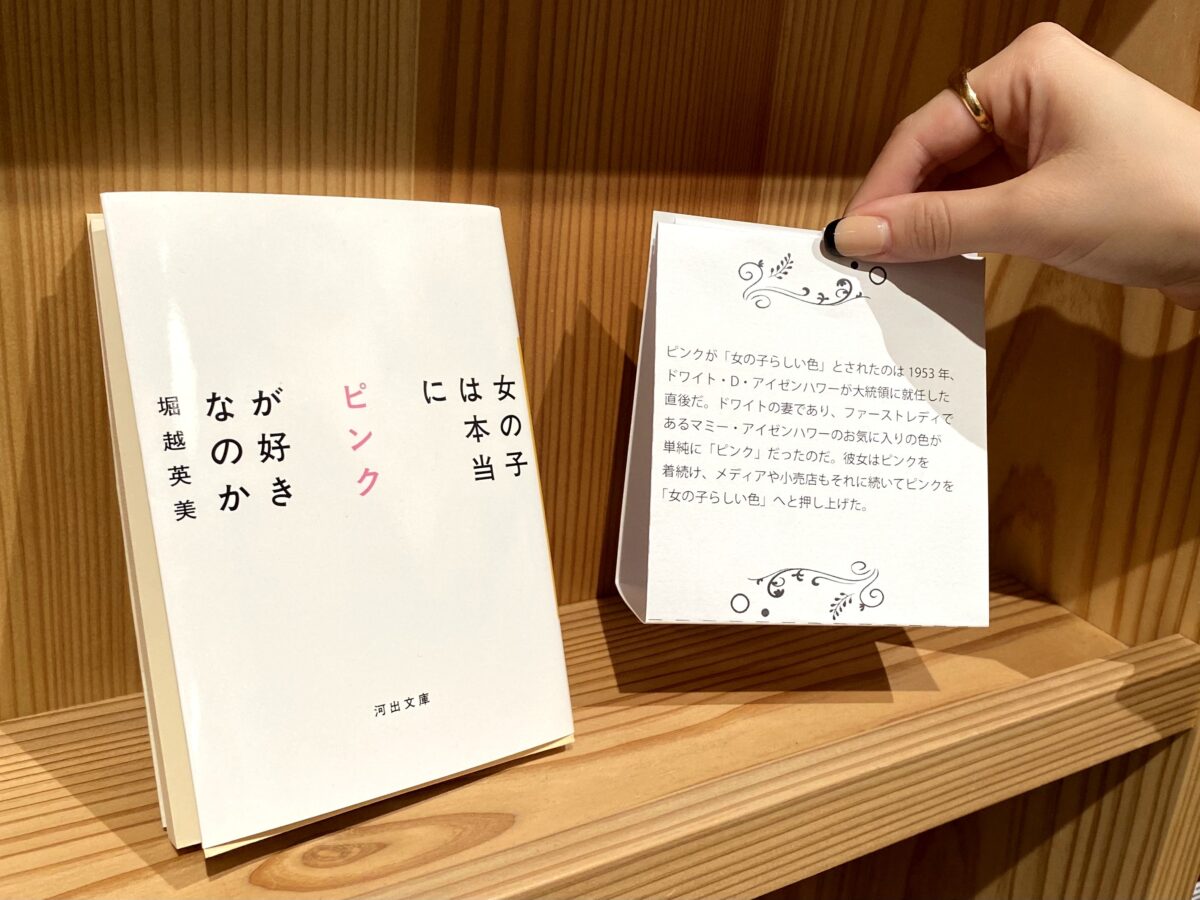 女の子
は本当
に
ピンク
が好き
なのか
堀越英美
河出文庫
ピンクが「女の子らしい色」とされたのは 1953 年、
ドワイト・D・アイゼンハワーが大統領に就任した
直後だ。ドワイトの妻であり、ファーストレディで
あるマミー・アイゼンハワーのお気に入りの色が
単純に「ピンク」だったのだ。彼女はピンクを
着続け、メディアや小売店もそれに続いてピンクを
「女の子らしい色」へと押し上げた。